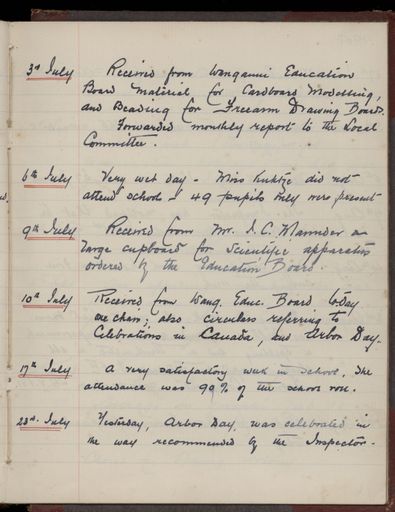 3rd July Received from Wanganui Education
Board material for Cardboard Modelling,
and Beading for Freearm Drawing Boards.
Forwarded monthly report to the Local
Committee.
6th July Very wet day - Miss did not
attend school - 49 pupils only were present
9th July Received from Mr. I. C. Maunder a
large cupboard for Scientific apparatus
ordered by the Education Board.
10th July Received from Wang. Educ. Board to-day
one chair; also circulars referring to
Celebrations in Canada, and Arbor Day.
17th July A very satisfactory week in school. The
attendance was 99% of the school roll.
23rd July Yesterday, Arbor Day, was celebrated in
the way recommended by the Inspector.